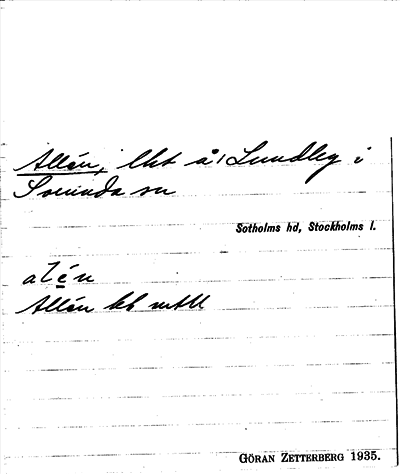 Allén, lht å 1 Lundby i
Sorunda sn
Sotholms hd, Stockholms l.
alén
Allén bf mtll
GÖRAN ZETTERBERG 1935.